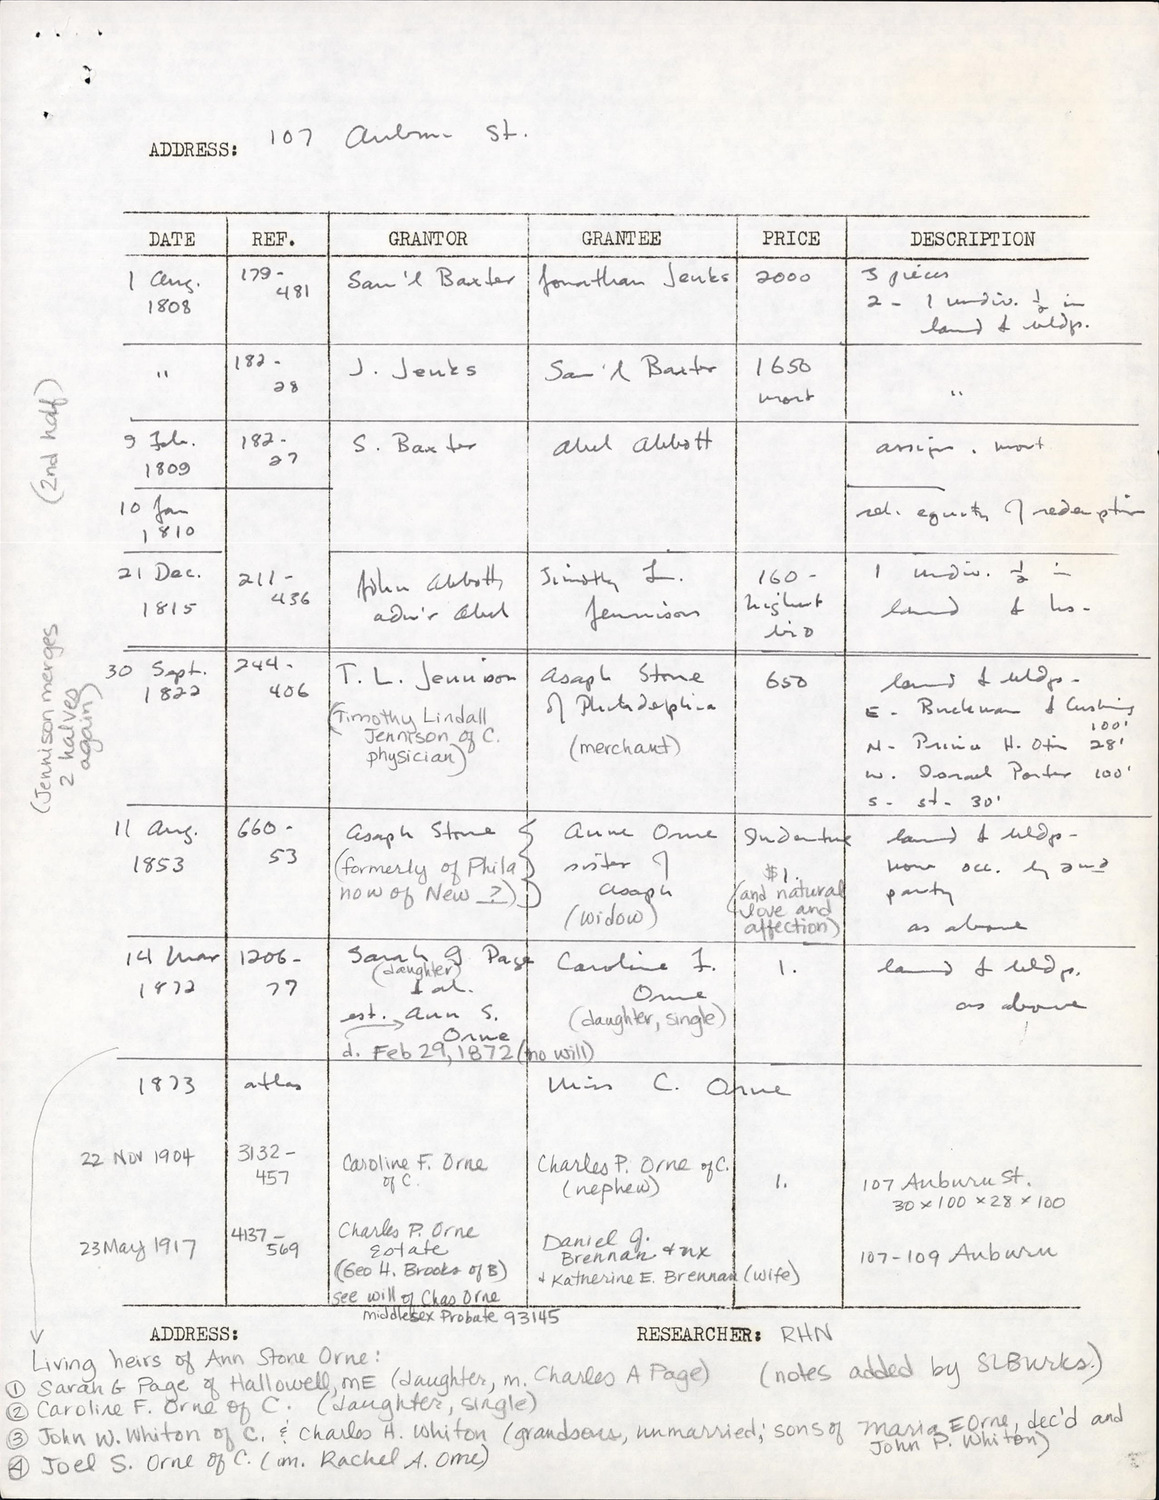 ADDRESS: 107 Auburn St.
DATE REF. GRANTOR GRANTEE PRICE DESCRIPTION
1 Aug. 1808 179-481 Sam'l Baxter Jonathan Jenks 2000 3 pieces
2 - 1 undiv. ½ in
land & bldgs.
" 182-28 J. Jenks Sam'l Baxter 1650 mort "
(2nd half)
9 Feb. 1809 182-27 S. Baxter Abel Abbott assign. mort
10 Jan 1810 rel. equity of redemption
21 Dec. 1815 211-436 John Abbott, adm'r Abel Timothy L. Jennison 160- highest bid 1 undiv. ½ in
land & ho-
(Jennison merges
2 halves
again)
30 Sept. 1822 244-406 T. L. Jennison Asaph Stone of Philadelphia 650 land & bldgs-
(Timothy Lindall
Jennison of C.
physician)
(merchant)
E - Buckman & Cushing 100'
N - Prince H. Otis 28'
W. Dorcas Porter 100'
S - st - 30'
11 Aug. 1853 660-53 Asaph Stone Anne Orne Indenture land & bldgs-
(formerly of Phila
now of New ?)
sister of
Asaph
(widow)
$1.
(and natural
love and
affection)
now occ. by 2nd
party
as above
14 Mar 1872 1206-77 Sarah G Page Caroline F. Orne 1. land & bldgs.
(daughter)
& al.
est. Ann S.
Orne
d. Feb 29, 1872 (no will)
(daughter, single)
as above
1873 atlas Miss C. Orne
22 Nov 1904 3132-457 Caroline F. Orne of C. Charles P. Orne of C. (nephew) 1. 107 Auburn St.
30 x 100 x 28 x 100
23 May 1917 4137-569 Charles P. Orne Estate Daniel J. Brennan & ux 107-109 Auburn
(Geo H. Brooks of B)
& Katherine E. Brennan (wife)
see will of Chas Orne
Middlesex Probate 93145
ADDRESS: RESEARCHER: RHN
Living heirs of Ann Stone Orne:
(notes added by SLBurks.)
① Sarah G Page of Hallowell, ME (daughter, m. Charles A Page)
② Caroline F. Orne of C. (daughter, single)
③ John W. Whiton of C. & Charles H. Whiton (grandsons, unmarried; sons of Maria E Orne, dec'd and
John P. Whiton)
④ Joel S. Orne of C. (m. Rachel A. Orne)